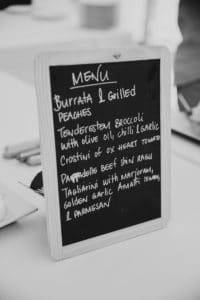 MENU
Burrata & Grilled
PEACHES
TENDERSTEM BROCCOLI
with olive oil, chilli & garlic
Crostini of ox HEART TOMATO
BEEF Shin RAGU
TAGLIARINI with MARJORAM,
GOLDEN GARLIC TOMATO,
& PARMESAN